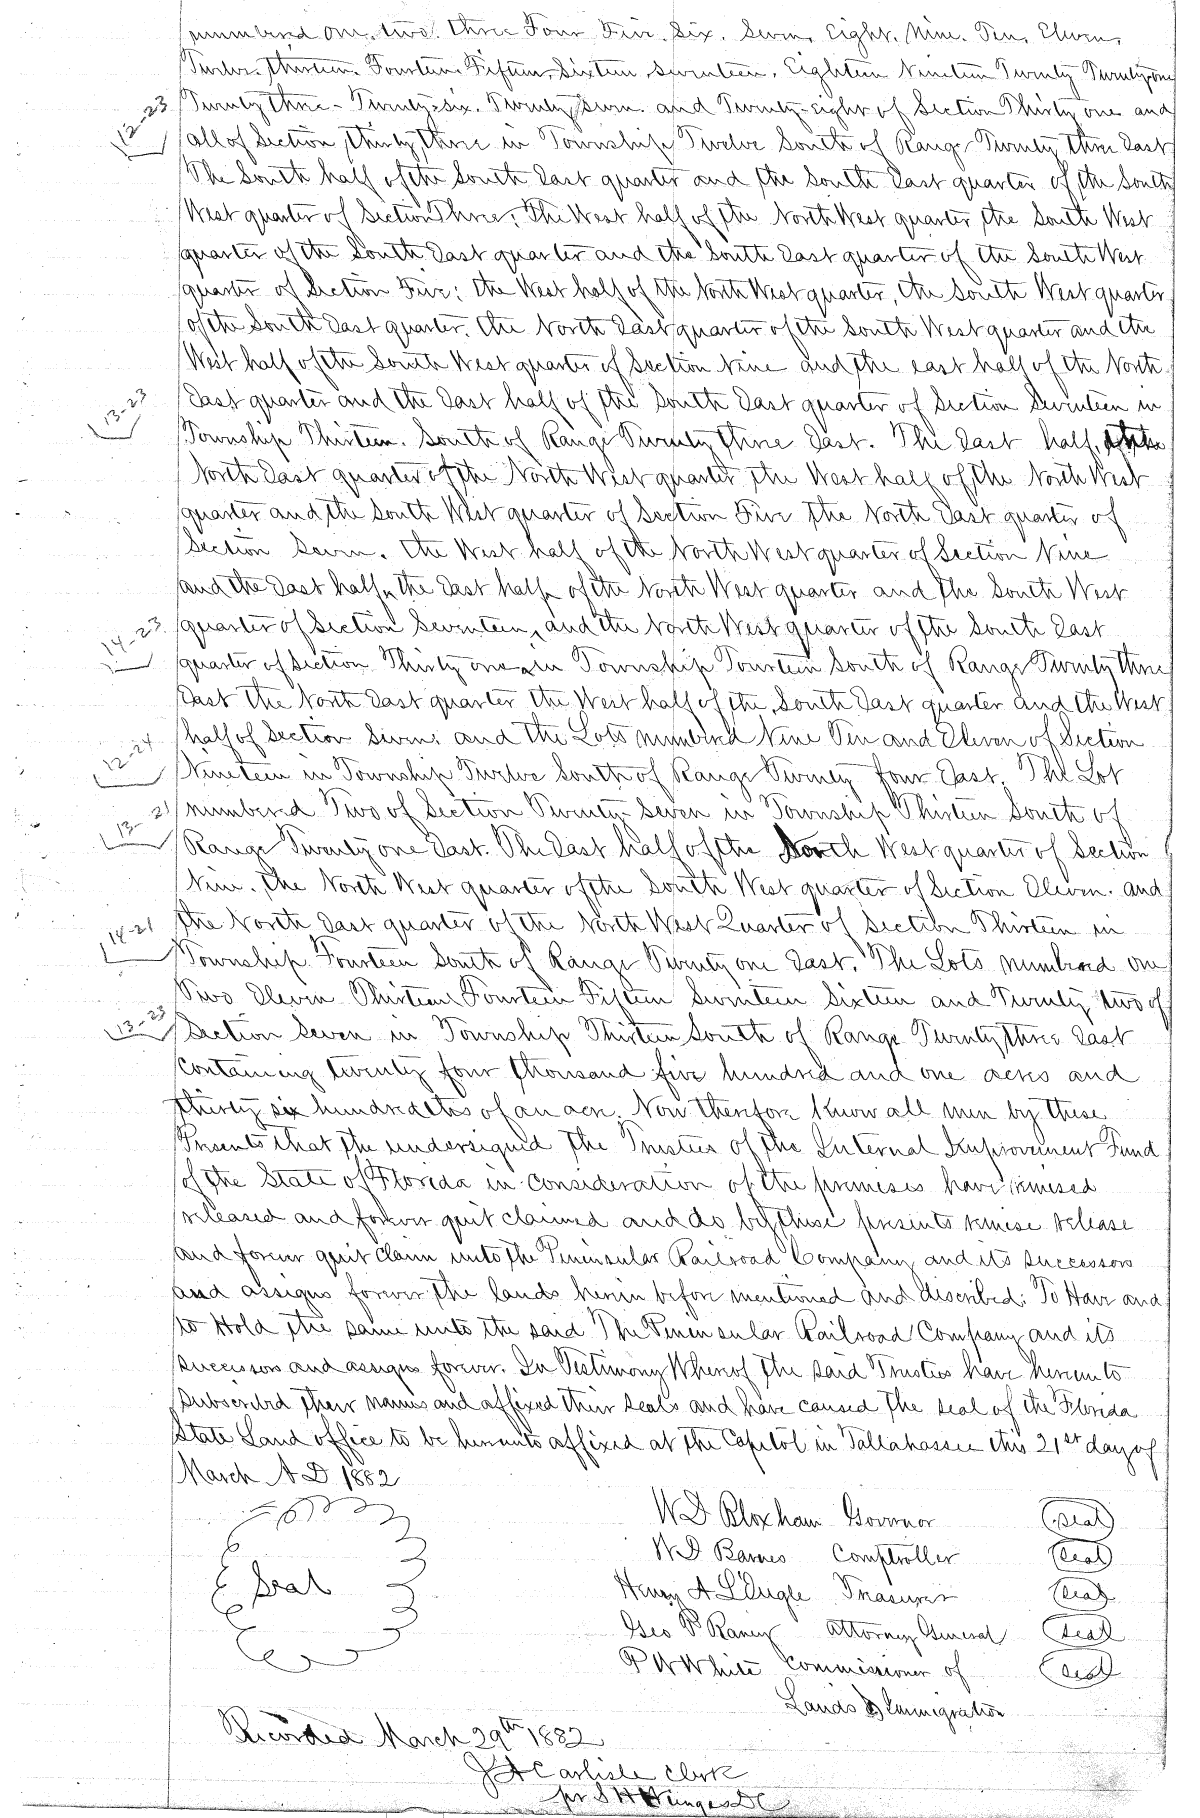 numbered one. two. three Four Five Six. Seven, Eight. Nine. Ten, Eleven,
Twelve. Thirteen. Fourteen Fifteen, Sixteen Seventeen, Eighteen Nineteen Twenty Twenty-one
Twenty three - Twenty-six. Twenty seven and Twenty-eight of Section Thirty one and
12-23
all of Section thirty three in Township Twelve South of Range Twenty three East
The South half of the South East quarter and the South East quarter of the South
West quarter of Section Three; The West half of the North West quarter, the South West
quarter of the South East quarter and the South East quarter of the South West
quarter of Section Five; the West half of the North West quarter, the South West quarter
of the South East quarter, the North East quarter of the South West quarter and the
West half of the South West quarter of Section Nine and the east half of the North
13-23
East quarter and the East half of the South East quarter of Section Seventeen in
Township Thirteen. South of Range Twenty three East. The East half, the
North East quarter of the North West quarter, the West half of the North West
quarter and the South West quarter of Section Five The North East quarter of
Section Seven. the West half of the North West quarter of Section Nine
and the East half, the East half of the North West quarter and the South West
14-23
quarter of Section Seventeen, and the North West quarter of the South East
quarter of Section Thirty one in Township Fourteen South of Range Twenty three
East the North East quarter the West half of the South East quarter and the West
12-24
half of Section Seven; and the Lots numbered Nine Ten and Eleven of Section
Nineteen in Township Twelve South of Range Twenty four East. The Lot
13-21
numbered Two of Section Twenty-Seven in Township Thirteen South of
Range Twenty one East. The East half of the North West quarter of Section
Nine. the North West quarter of the South West quarter of Section Eleven. and
14-21
the North East quarter of the North West Quarter of Section Thirteen in
Township Fourteen South of Range Twenty one East. The Lots numbered one
Two Eleven Thirteen Fourteen Fifteen Seventeen Sixteen and Twenty two of
13-23
Section Seven in Township Thirteen South of Range Twenty three East
containing twenty four thousand five hundred and one acres and
thirty six hundredths of an acre. Now therefore Know all men by these
Presents that the undersigned The Trustees of the Internal Improvement Fund
of the State of Florida in consideration of the premises have remised
released and forever quit claimed and do by these presents remise release
and forever quit claim unto the Peninsular Railroad Company and its successors
and assigns forever the lands herein before mentioned and described: To Have and
to Hold the same unto the said The Peninsular Railroad Company and its
successors and assigns forever. In Testimony Whereof the said Trustees have hereunto
subscribed their names and affixed their seals and have caused the seal of the Florida
State Land office to be hereunto affixed at the Capitol in Tallahassee this 21st day of
March A D 1882
W D Bloxham Governor (seal)
W D Barnes Comptroller (seal)
Seal
Henry A L'Engle Treasurer (seal)
Geo P Raney Attorney General (seal)
P W White Commissioner of (seal)
Lands & Immigration
Recorded March 29th 1882
Carlisle Clerk
per S H DC